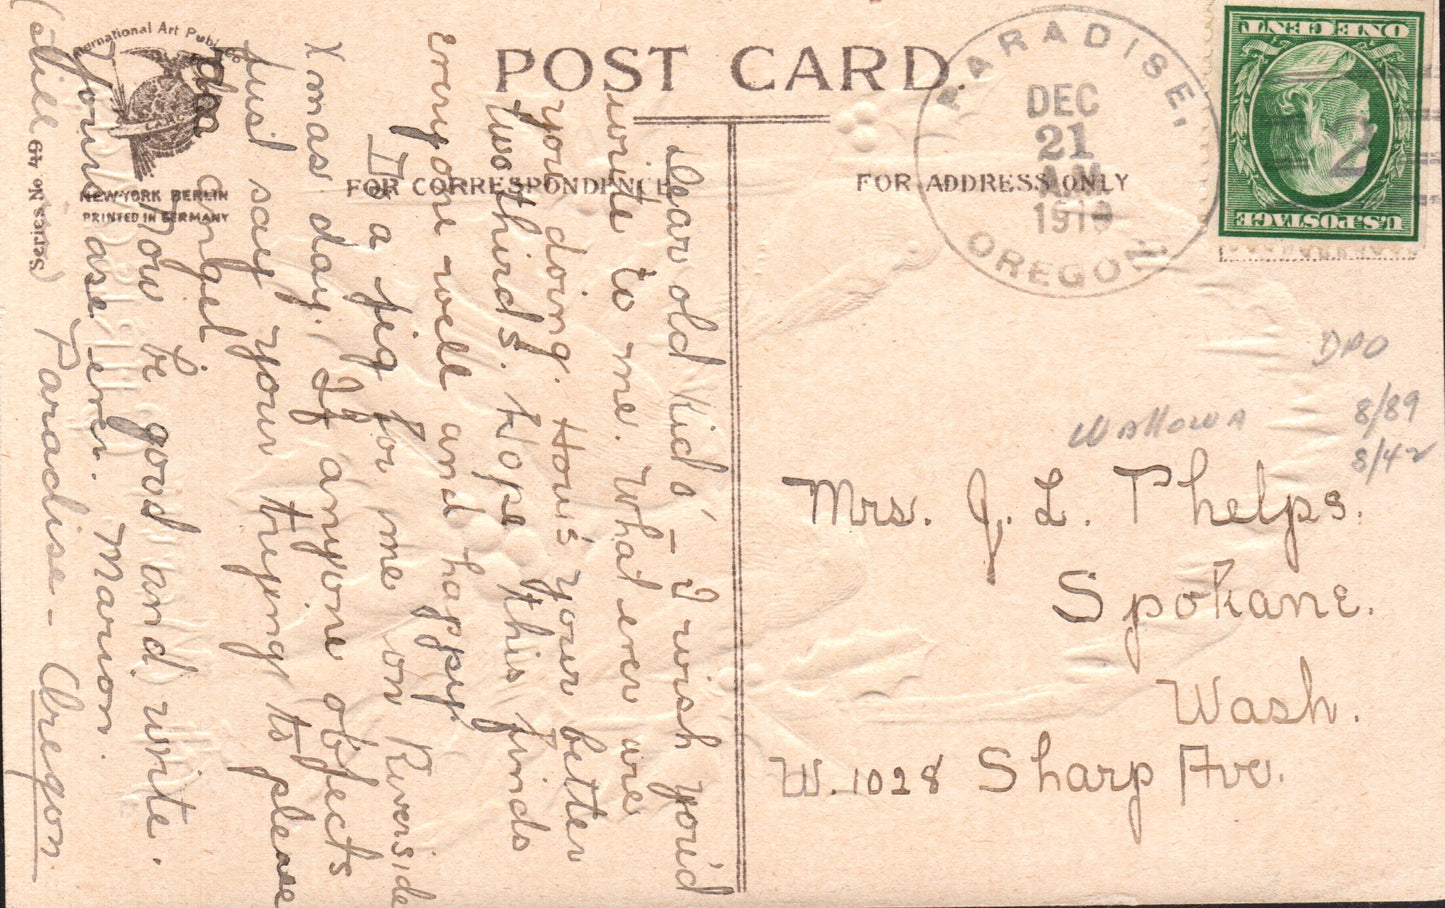 International Art Publ. Co.
NEW-YORK BERLIN
PRINTED IN GERMANY
Series No 49
POST CARD.
FOR CORRESPONDENCE
FOR ADDRESS ONLY
PARADISE,
DEC
21
AM
1910
OREGON
ONE CENT
U.S. POSTAGE
2
DPO
8/89
8/42
Wallowa
Mrs. J. L. Phelps.
Spokane.
Wash.
W. 1028 Sharp Ave.
Dear old Kid's - I wish you'd
write to me. What ever are
you doing. How's your better
two thirds. Hope this finds
everyone well and happy.
Do a jig for me on Riverside
Xmas day. If anyone objects
just say your trying to please
an angel
Now be good and write.
Yours as ever. Marion.
(Still Paradise - Oregon